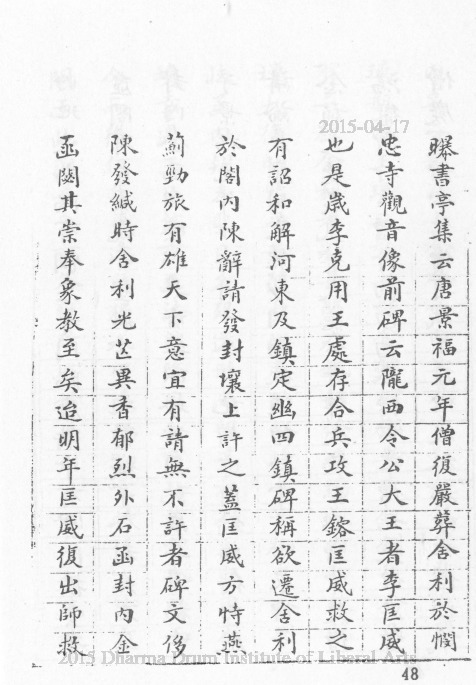 曝書亭集云唐景福元年僧復嚴葬舍利於憫
忠寺觀音像前碑云隴西令公大王者李匡威
也是歲李克用王處存合兵攻王鎔匡威救之
有詔和解河東及鎮定幽四鎮碑稱欲遷舍利
於閣內陳辭請發封壤上許之蓋匡威方恃燕
薊勁旅有雄天下意宜有請無不許者碑文侈
陳發緘時舍利光芒異香郁烈外石函封內金
函閟其崇奉象教至矣迨明年匡威復出師救
2015-04-17
2015 Dharma Drum Institute of Liberal Arts
48